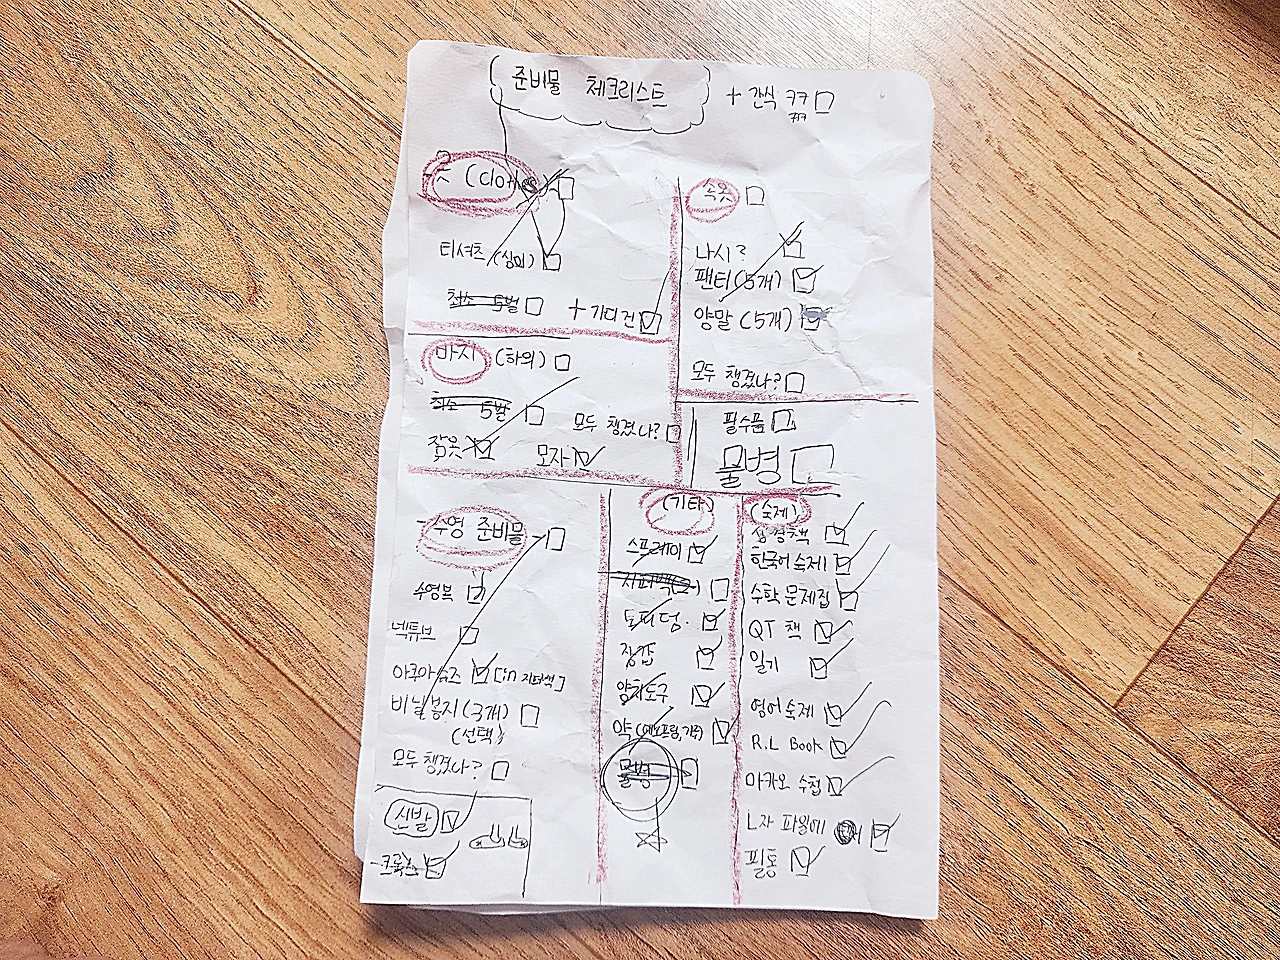 준비물 체크리스트
+ 간식 쿠키
옷 (clothes)
티셔츠 (상의)
최소 5벌
+ 가디건
바지 (하의)
최소 5벌
모두 챙겼나?
잠옷
모자
속옷
나시?
팬티 (5개)
양말 (5개)
모두 챙겼나?
필수품
물병
수영 준비물
수영복
넥튜브
아쿠아슈즈 [in 지퍼백]
비닐봉지 (3개)
(선택)
모두 챙겼나?
신발
-크록스
(기타)
스프레이
지퍼백
토퍼덤.
장갑
양치도구
약
물병
(숙제)
한국어 숙제
수학 문제집
QT 책
일기
영어 숙제
R.L Book
마카오 수첩
L자 파일에
필통